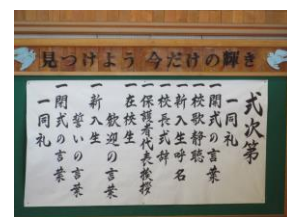 見つけよう 今だけの輝き
式次第
一同礼
一開式の言葉
一校歌静聴
一新入生呼名
一校長式辞
一保護者代表挨拶
一在校生
歓迎の言葉
一新入生
誓いの言葉
一閉式の言葉
一同礼